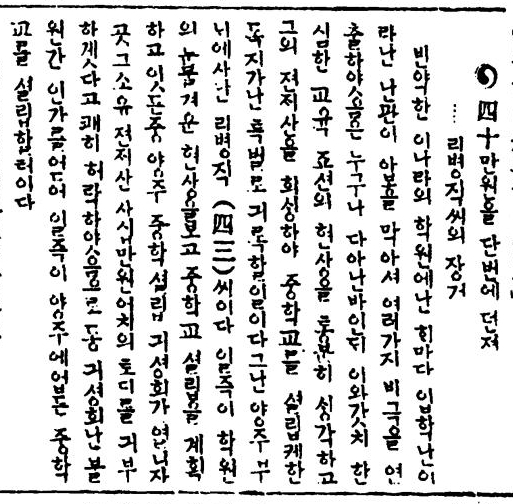 四十만원을 단번에 던져
리병직씨의 장거
빈약한 이나라의 학원에난 해마다 입학난이
라난 난관이 압흘 막아서 여러가지 비극을 연
출하야슴은 누구나 다아난바인데 이와갓치 한
심한 교육 죠션의 현상을 통분히 생각하고
그의 젼재산을 희생하야 중학교를 설립케한
독지가난 특별로 긔록할일이다그난 양주부
내에사난 리병직 (四三)씨이다 일즉이 학원
의 눈물겨운 현상을보고 중학교 설립을 계획
하고 잇든중 양주 중학설립 긔셩회가 열니자
곳그소유 젼재산 사십만원어치의 토디를 긔부
하겟다고 쾌히 허락하야슴으로 동 긔셩회난 불
원간 인가를어더 일즉이 양주에업든 중학
교를 설립합러이다